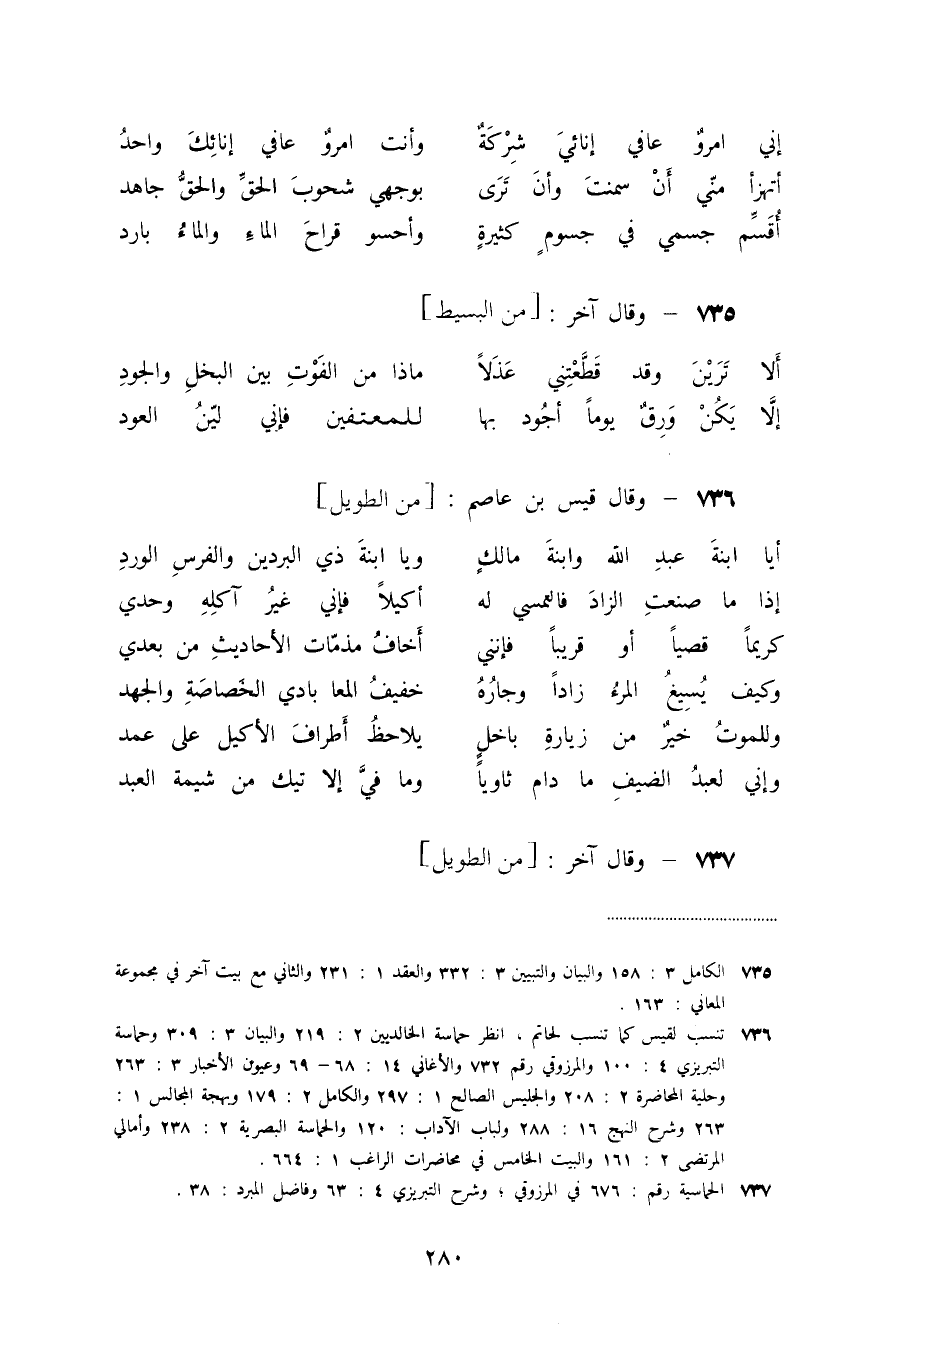 إني امروٌ عافي إنائيَ شِرْكَةٌ وأنت امروٌ عافي إنائِكَ واحدُ
أتهزأ منّي أَنْ سمنتَ وأنَ تَرَى بوجهي شحوبَ الحقِّ والحقُّ جاهد
أُقَسِّم جسمي في جسومٍ كثيرةٍ وأحسو قراحَ الماءِ والماءُ بارد
٧٣٥ – وقال آخر : [من البسيط]
أَلا تَرَيْنَ وقد قَطَّعْتِني عَذَلاً ماذا من الفَوْتِ بين البخلِ والجودِ
إلَّا يَكُنْ وَرِقٌ يوماً أجُود بها للمعتفين فإني ليّنُ العود
٧٣٦ – وقال قيس بن عاصم : [من الطويل]
أيا ابنةَ عبدِ الله وابنةَ مالكٍ ويا ابنةَ ذي البردين والفرسِ الوردِ
إذا ما صنعتِ الزادَ فالتمسي له أكيلاً فإني غيرُ آكلِهِ وحدي
كريماً قصياً أو قريباً فإنني أَخافُ مذمّات الأحاديثِ من بعدي
وكيف يُسِيغُ المرءُ زاداً وجارُهُ خفيفُ المعا بادي الخَصاصَةِ والجهد
وللموتُ خيرٌ من زيارةِ باخلٍ يلاحظُ أَطرافَ الأكيل على عمد
وإني لعبدُ الضيفِ ما دام ثاوياً وما فيَّ إلا تيك من شيمة العبد
٧٣٧ – وقال آخر : [من الطويل]
٧٣٥ الكامل ٣ : ١٥٨ والبيان والتبيين ٣ : ٣٣٢ والعقد ١ : ٢٣١ والثاني مع بيت آخر في مجموعة
المعاني : ١٦٣ .
٧٣٦ تنسب لقيس كما تنسب لحاتم ، انظر حماسة الخالديين ٢ : ٢١٩ والبيان ٣ : ٣٠٩ وحماسة
التبريزي ٤ : ١٠٠ والمرزوقي رقم ٧٣٢ والأغاني ١٤ : ٦٨ – ٦٩ وعيون الأخبار ٣ : ٢٦٣
وحلية المحاضرة ٢ : ٢٠٨ والجليس الصالح ١ : ٢٩٧ والكامل ٢ : ١٧٩ وبهجة المجالس ١ :
٢٦٣ وشرح النهج ١٦ : ٢٨٨ ولباب الآداب : ١٢٠ والحماسة البصرية ٢ : ٢٣٨ وأمالي
المرتضى ٢ : ١٦١ والبيت الخامس في محاضرات الراغب ١ : ٦٦٤ .
٧٣٧ الحماسية رقم : ٦٧٦ في المرزوقي ؛ وشرح التبريزي ٤ : ٦٣ وفاضل المبرد : ٣٨ .
٢٨٠